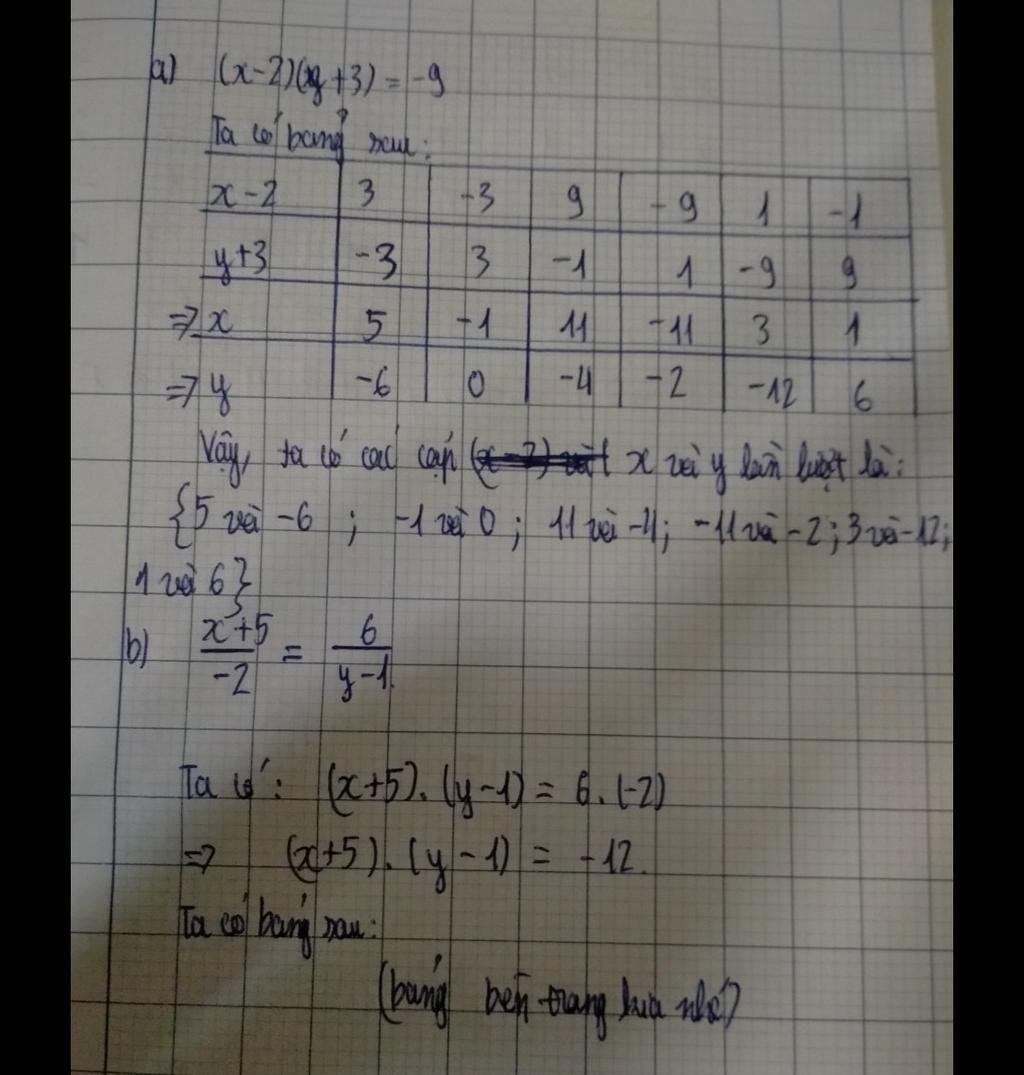 a) (x-2)(y+3) = -9
Ta có bảng sau:
x-2 3 -3 9 -9 1 -1
y+3 -3 3 -1 1 -9 9
=> x 5 -1 11 -11 3 1
=> y -6 0 -4 -2 -12 6
Vậy, ta có các cặp x và y lần lượt là:
{5 và -6 ; -1 và 0 ; 11 và -4; -11 và -2 ; 3 và -12;
1 và 6}
b) x+5 / -2 = 6 / y-1
Ta có: (x+5).(y-1) = 6.(-2)
=> (x+5).(y-1) = -12.
Ta có bảng sau:
(bảng bên trang kia nhé)